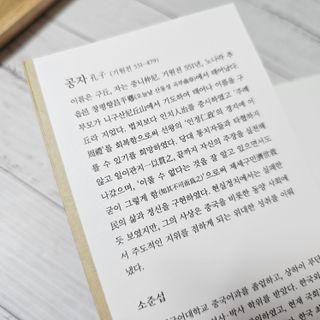 공자 孔子 (기원전 551-479)
이름은 구丘, 자는 중니仲尼. 기원전 551년, 노나라 추
읍현 창평향昌平鄕에서 태어났다.
부모가 니구산尼丘山에서 기도하여 태어나 이름을 구
丘라 지었다. 법치보다는 인치人治를 중시하였고 '주례
周禮'를 회복함으로써 선왕의 '인정仁政'의 경지에 이
를 수 있기를 희망하였다. 당대 통치자들을 타협하지
않고 일이관지一以貫之, 끝까지 자신의 주장을 실천해
나갔으며, '이룰 수 없다는 것을 잘 알고 있으면서도
굳이 그렇게 함(知其不可而爲之)'으로써 제세구민濟世救
民의 삶과 정신을 구현하였다. 현실정치에서는 실패한
듯 보였지만, 그의 사상은 중국을 비롯한 동양 사회에
서 주도적인 지위를 점하게 되는 위대한 성취를 이뤄
냈다.
소준섭
국어대학교 중국어과를 졸업하고, 상하이 푸단
석사·박사 학위를 받았다. 한국외
현재 국회